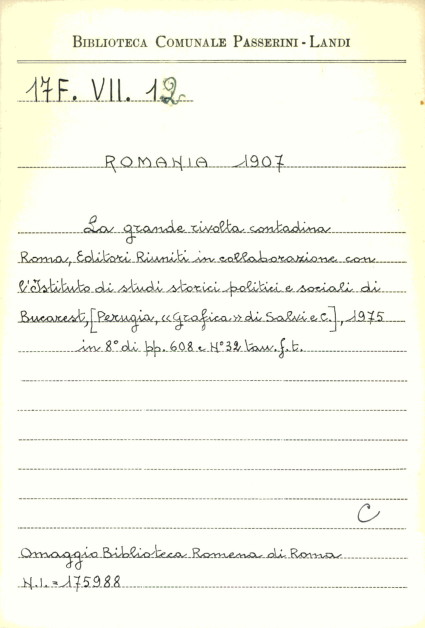 BIBLIOTECA COMUNALE PASSERINI - LANDI
17F. VII. 12
ROMANIA 1907
La grande rivolta contadina
Roma, Editori Riuniti in collaborazione con
l'Istituto di studi storici politici e sociali di
Bucarest, [Perugia, «Grafica» di Salvi e C.], 1975
in 8° di pp. 608 e N° 32 tav. f. t.
C
Omaggio Biblioteca Romena di Roma
N.I. = 175988